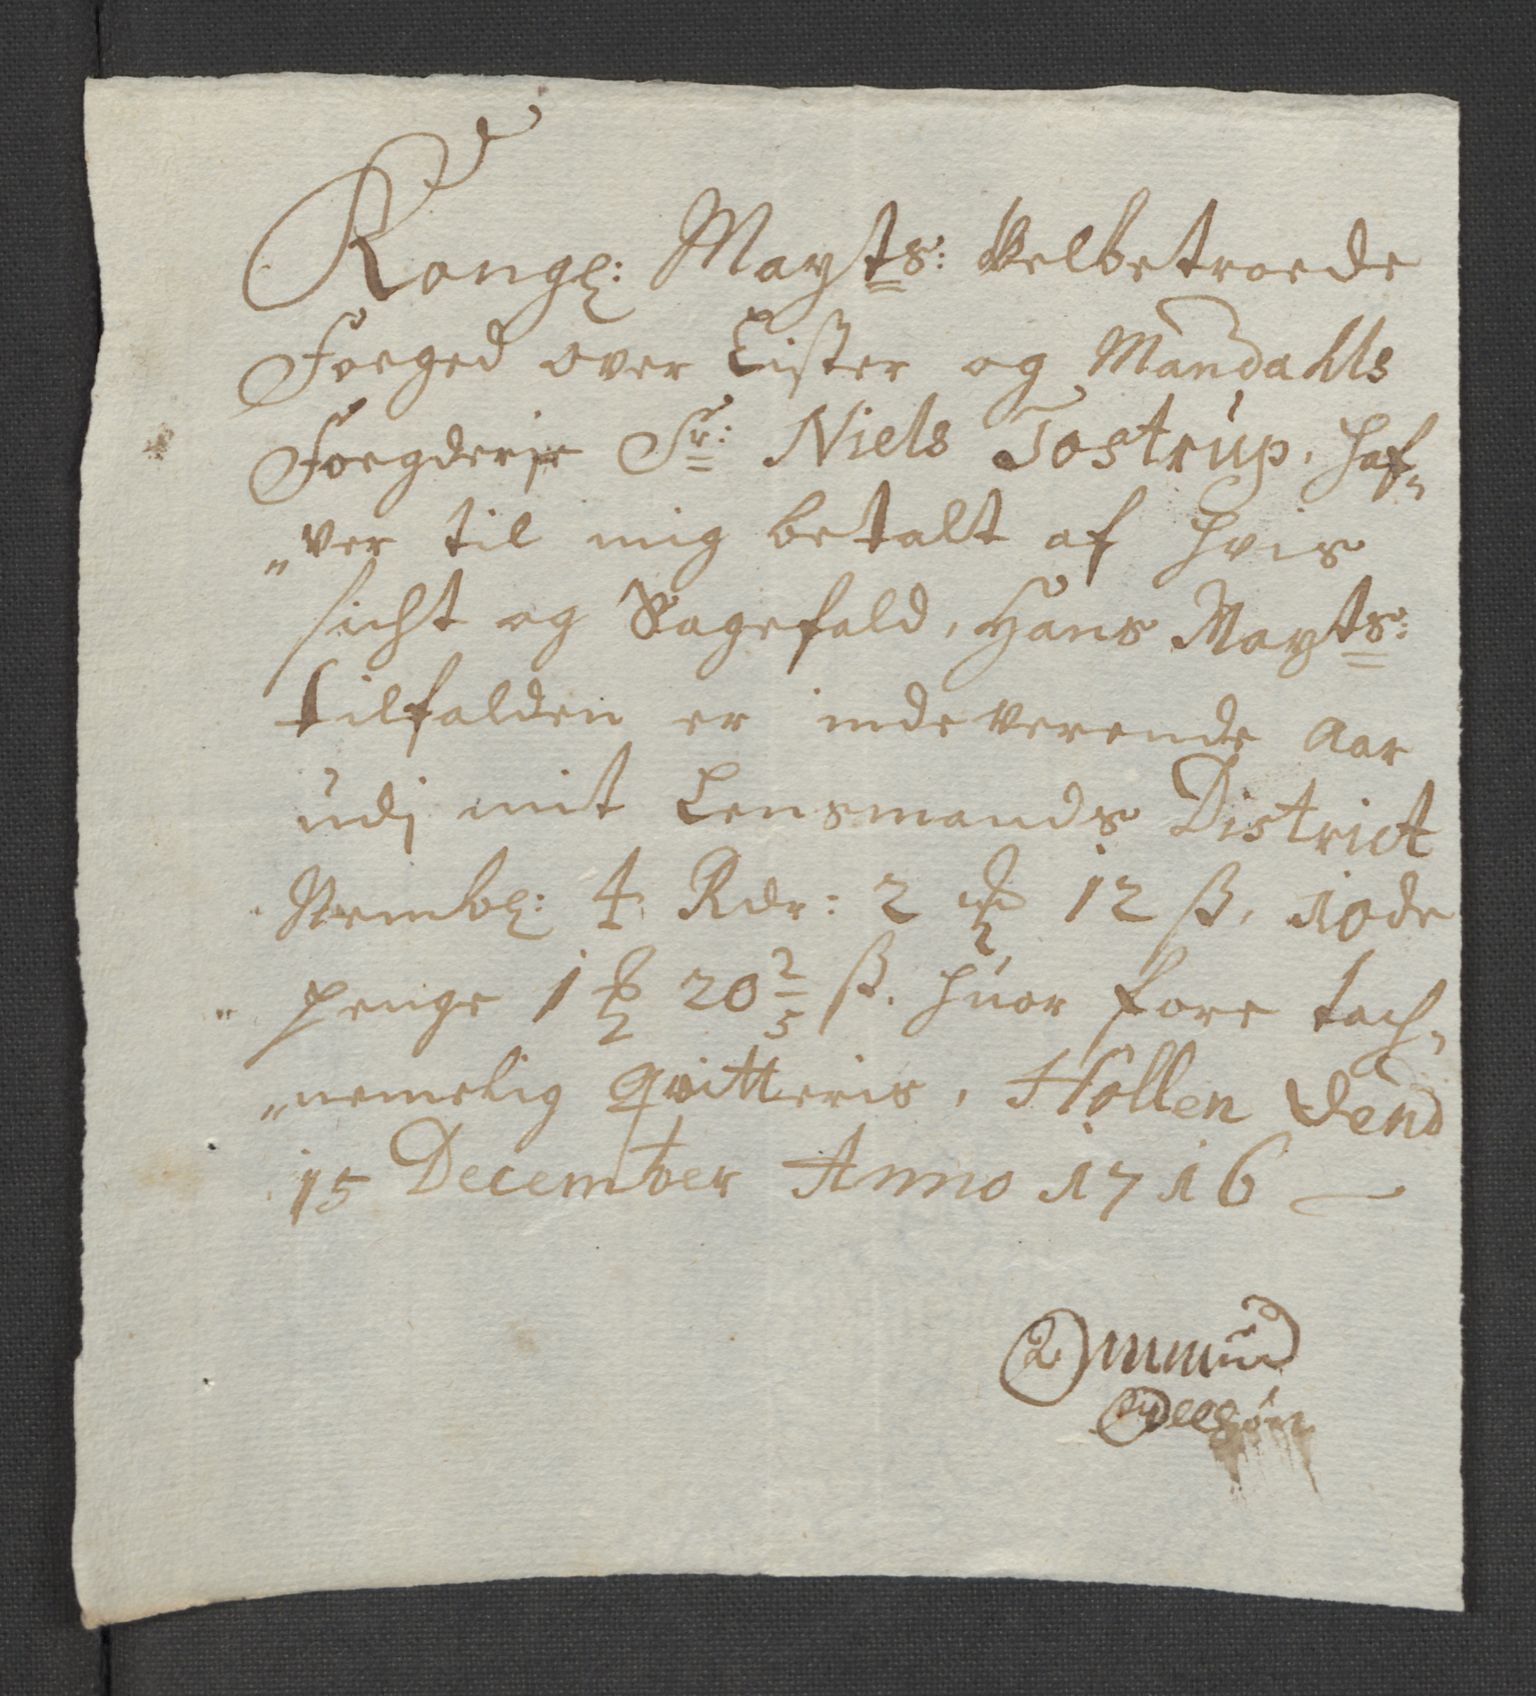 Kongl: Mayts: Velbetroede
Foeged over Lister og Mandahls
Foegderie Sr: Niels Tostrup, haf„
„ver til mig betalt af hvis
sicht og Sagefald, Hans Mayts:
tilfalden er indeverende Aar
udj mit Lensmands District
Nembl: 4 Rdr: 2 ₰ 12 ß, 10de
penge 1 ₰ 20 2/5 ß. huor fore tach„
„nemelig qvitteris, Hollen dend
15 December Anno 1716
Ommund